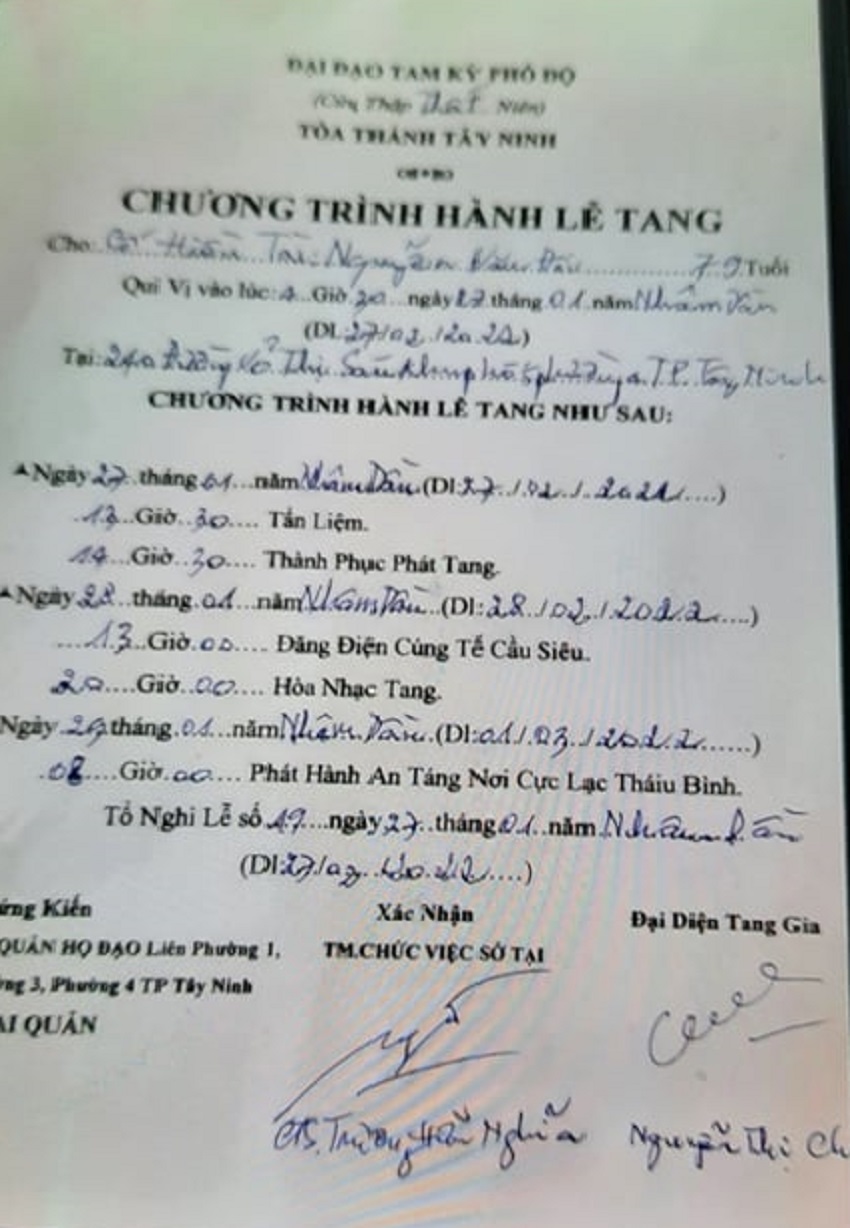 ĐẠI ĐẠO TAM KỲ PHỔ ĐỘ
(Cửu Thập Thất Niên)
TÒA THÁNH TÂY NINH
CHƯƠNG TRÌNH HÀNH LỄ TANG
Cho: Cố Hiền Tài: Nguyễn Văn ............ 79 Tuổi
Qui Vị vào lúc: 4 Giờ 30 ngày 27 tháng 01 năm Nhâm Dần
(DL: 27/02/2022)
Tại: 240 Đường Võ Thị Sáu Khu phố 5 TP. Tây Ninh
CHƯƠNG TRÌNH HÀNH LỄ TANG NHƯ SAU:
Ngày 27 tháng 01 năm Nhâm Dần (Dl: 27/02/2022)
13 Giờ 30 Tẩn Liệm.
14 Giờ 30 Thành Phục Phát Tang.
Ngày 28 tháng 01 năm Nhâm Dần (Dl: 28/02/2022)
13 Giờ 00 Đăng Điện Cúng Tế Cầu Siêu.
20 Giờ 00 Hòa Nhạc Tang.
Ngày 29 tháng 01 năm Nhâm Dần (Dl: 01/03/2022)
08 Giờ 00 Phát Hành An Táng Nơi Cực Lạc Tháiu Bình.
Tổ Nghi Lễ số 19 ngày 27 tháng 01 năm Nhâm Dần
(Dl: 27/02/2022)
ứng Kiến Xác Nhận Đại Diện Tang Gia
QUẢN HỌ ĐẠO Liên Phường 1, TM.CHỨC VIỆC SỞ TẠI
ng 3, Phường 4 TP Tây Ninh
AI QUẢN
CTS. Trương Hiếu Nghĩa Nguyễn Thị Ch